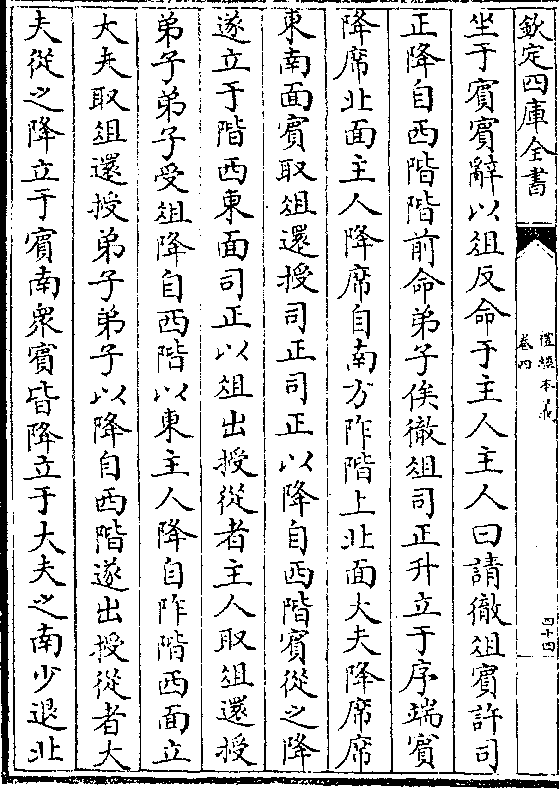 欽定四庫全書
禮經本義
卷四
四十四
坐于賓賓辭以俎反命于主人主人曰請徹俎賓許司
正降自西階階前命弟子俟徹俎司正升立于序端賓
降席北面主人降席自南方阼階上北面大夫降席席
東南面賓取俎還授司正司正以降自西階賓從之降
遂立于階西東面司正以俎出授從者主人取俎還授
弟子弟子受俎降自西階以東主人降自阼階西面立
大夫取俎還授弟子弟子以降自西階遂出授從者大
夫從之降立于賓南衆賓皆降立于大夫之南少退北